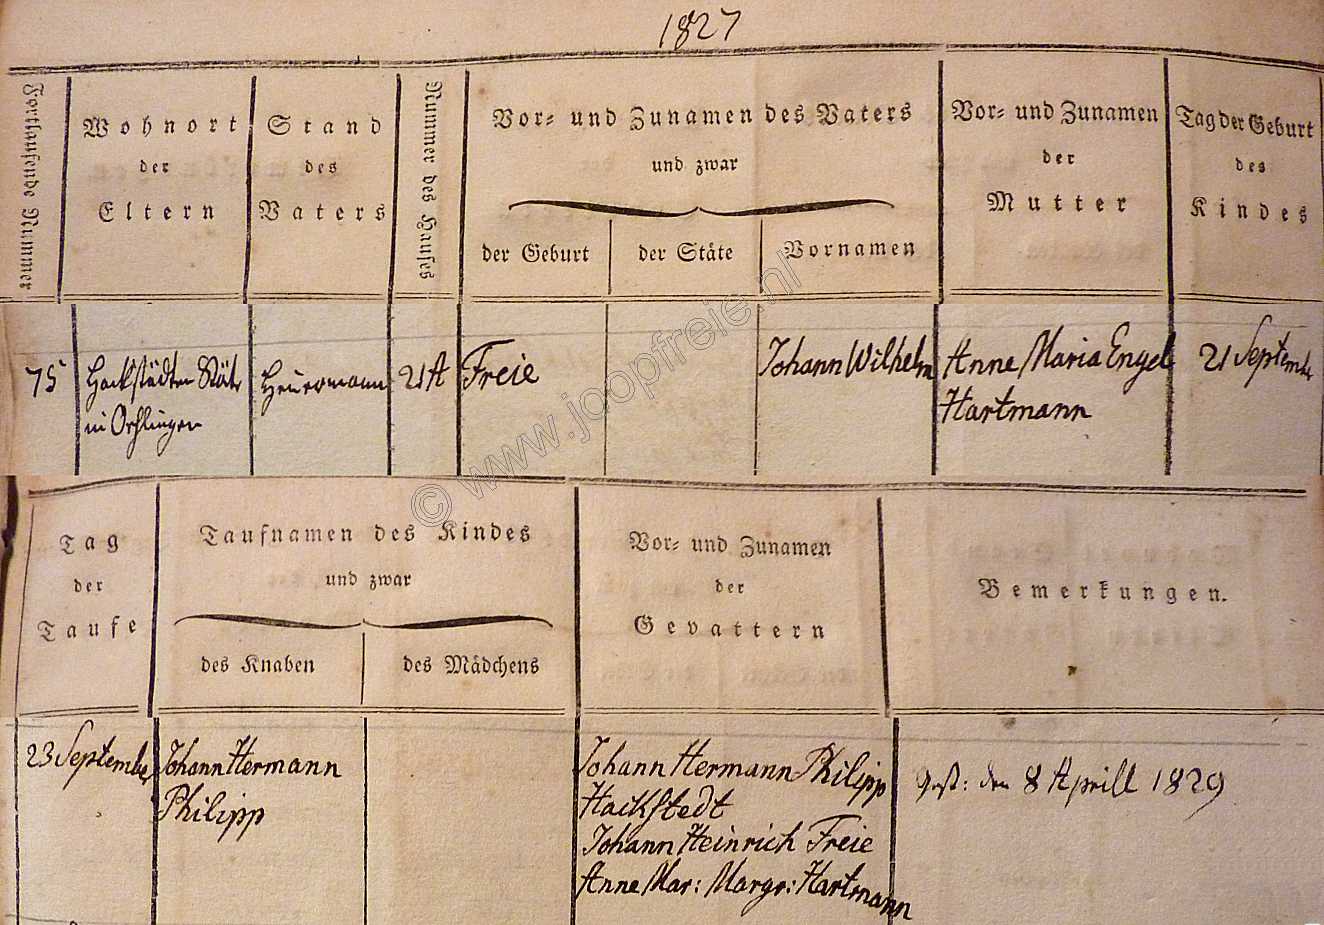 1827
Fortlaufende Nummer
Wohnort
der
Eltern
Stand
des
Vaters
Nummer des Hauses
Vor- und Zunamen des Vaters
und zwar
der Geburt
der Stäte
Vornamen
Vor- und Zunamen
der
Mutter
Tag der Geburt
des
Kindes
75
Hackstädten Stäte
in Oehlingen
Heuermann
21 A
Freie
Johann Wilhelm
Anne Maria Engel
Hartmann
21 September
Tag
der
Taufe
Taufnamen des Kindes
und zwar
des Knaben
des Mädchens
Vor- und Zunamen
der
Gevattern
Bemerkungen.
23 September
Johann Hermann
Philipp
Johann Hermann Philipp
Hackstedt
Johann Heinrich Freie
Anne Mar: Margr: Hartmann
Gest: den 8 Aprill 1829
© www.joopfreie.nl